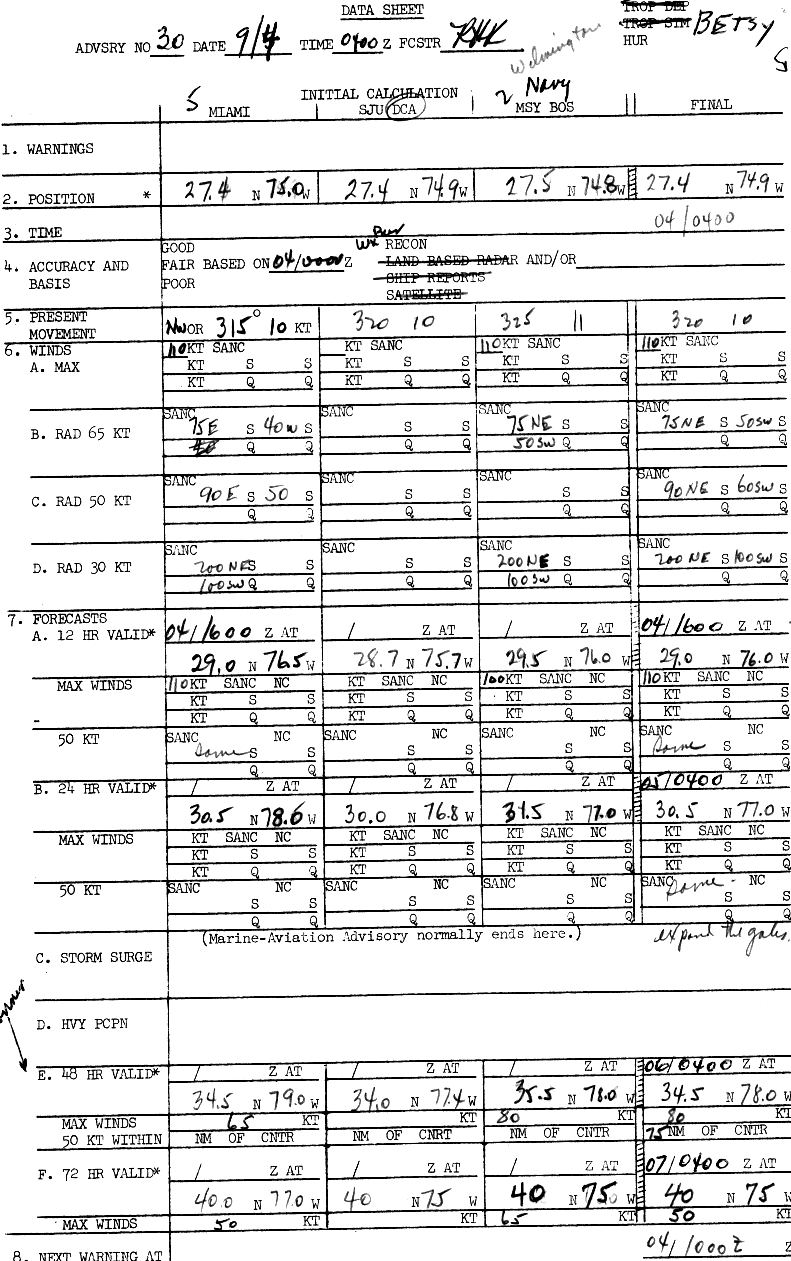 DATA SHEET
TROP DEP
TROP STM BETSY
HUR
ADVSRY NO 30 DATE 9/4 TIME 0400 Z FCSTR RHK
Wilmington
INITIAL CALCULATION
5 MIAMI SJU DCA 2 Navy MSY BOS FINAL
1. WARNINGS
2. POSITION * 27.4 N 75.0 W 27.4 N 74.9 W 27.5 N 74.8 W 27.4 N 74.9 W
3. TIME 04/0400
4. ACCURACY AND BASIS
GOOD
FAIR BASED ON 04/0000 Z
POOR
RECON
LAND BASED RADAR AND/OR
SHIP REPORTS
SATELLITE
5. PRESENT MOVEMENT NW OR 315° 10 KT 320 10 325 11 320 10
6. WINDS
A. MAX 110 KT SANC KT SANC 110 KT SANC 110 KT SANC
KT S S KT S S KT S S KT S S
KT Q Q KT Q Q KT Q Q KT Q Q
B. RAD 65 KT SANC SANC SANC SANC
75E S 40W S S S 75NE S S 75NE S 50SW S
Q Q Q Q 50SW Q Q Q Q
C. RAD 50 KT SANC SANC SANC SANC
90E S 50 S S S S S 90NE S 60SW S
Q Q Q Q Q Q Q Q
D. RAD 30 KT SANC SANC SANC SANC
200NE S S S S 200NE S S 200NE S 100SW S
100SW Q Q Q Q 100SW Q Q Q Q
7. FORECASTS
A. 12 HR VALID* 04/1600 Z AT / Z AT / Z AT 04/1600 Z AT
29.0 N 76.5 W 28.7 N 75.7 W 29.5 N 76.0 W 29.0 N 76.0 W
MAX WINDS 110 KT SANC NC KT SANC NC 100 KT SANC NC 110 KT SANC NC
KT S S KT S S KT S S KT S S
KT Q Q KT Q Q KT Q Q KT Q Q
50 KT SANC NC SANC NC SANC NC SANC NC
Same S S S S S S Same S S
Q Q Q Q Q Q Q Q
B. 24 HR VALID* / Z AT / Z AT / Z AT 05/0400 Z AT
30.5 N 78.6 W 30.0 N 76.8 W 31.5 N 77.0 W 30.5 N 77.0 W
MAX WINDS KT SANC NC KT SANC NC KT SANC NC KT SANC NC
KT S S KT S S KT S S KT S S
KT Q Q KT Q Q KT Q Q KT Q Q
50 KT SANC NC SANC NC SANC NC SANC Same NC
S S S S S S S S
Q Q Q Q Q Q Q Q
(Marine-Aviation Advisory normally ends here.) expand the gales.
C. STORM SURGE
D. HVY PCPN
E. 48 HR VALID* / Z AT / Z AT / Z AT 06/0400 Z AT
34.5 N 79.0 W 34.0 N 77.4 W 35.5 N 78.0 W 34.5 N 78.0 W
MAX WINDS 65 KT KT 80 KT 80 KT
50 KT WITHIN NM OF CNTR NM OF CNRT NM OF CNTR 75 NM OF CNTR
F. 72 HR VALID* / Z AT / Z AT / Z AT 07/0400 Z AT
40.0 N 77.0 W 40 N 75 W 40 N 75.0 W 40 N 75 W
MAX WINDS 50 KT KT 65 KT 50 KT
8. NEXT WARNING AT 04/1000Z Z